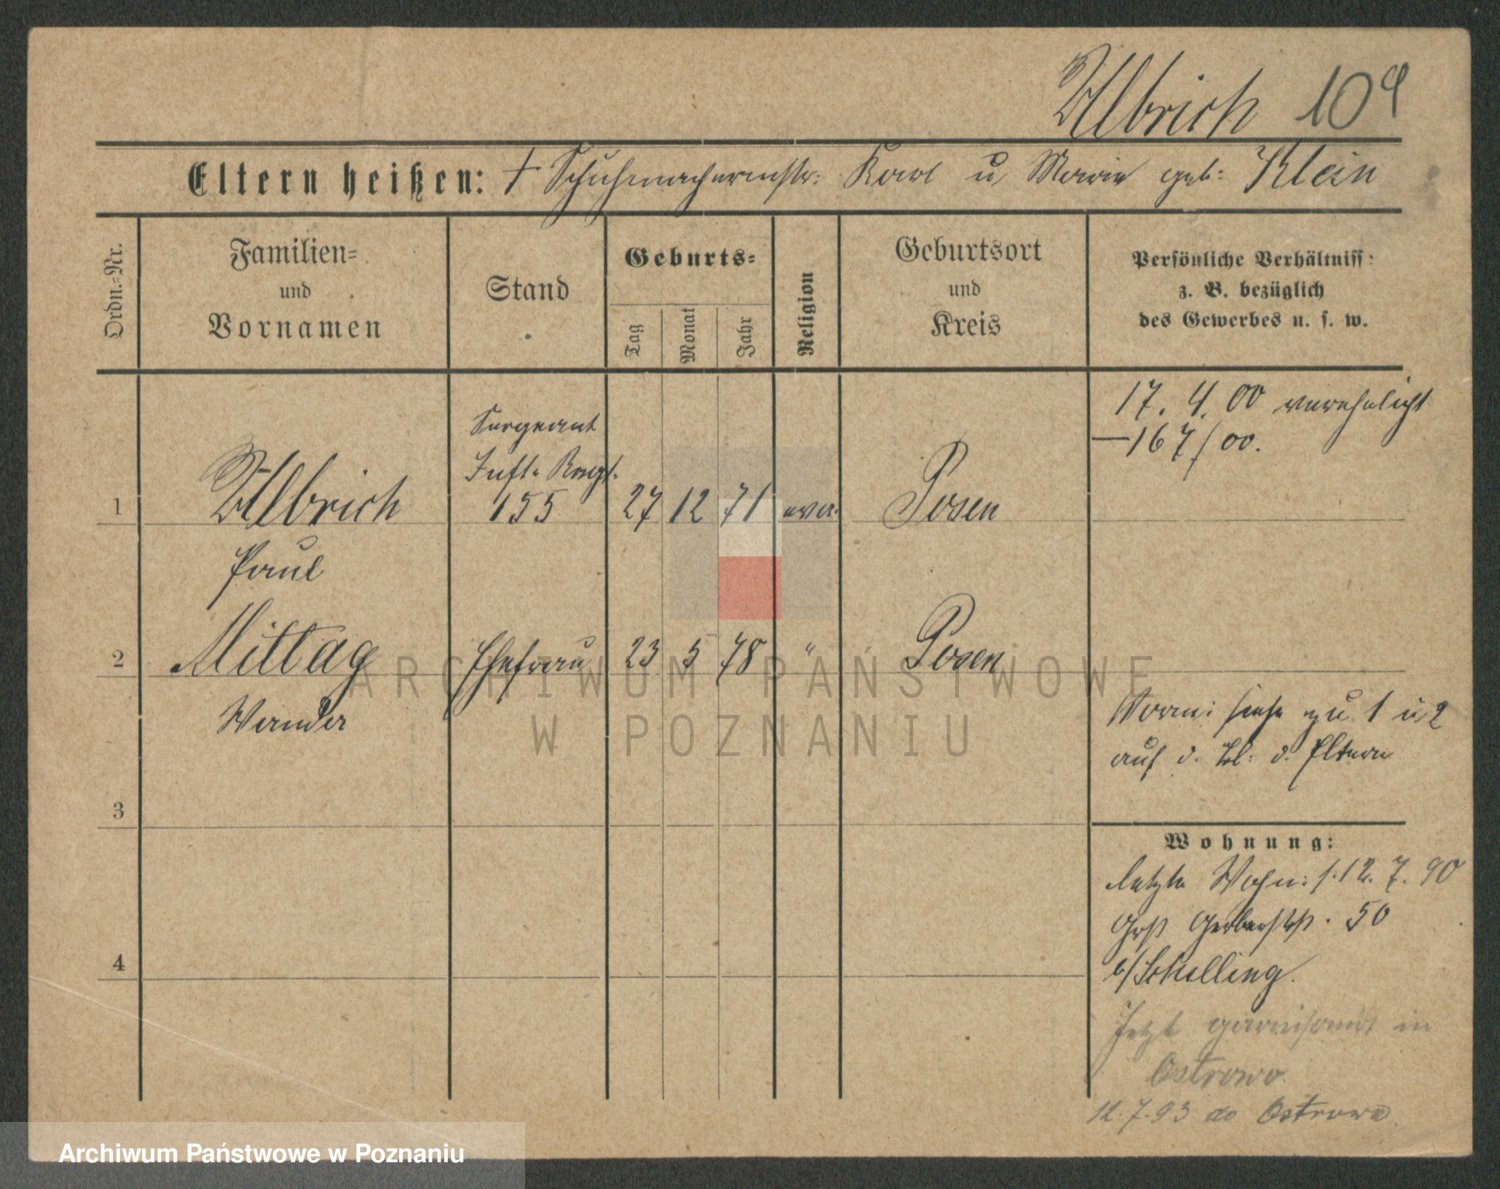 Ulbrich 109
Eltern heißen: † Schuhmachermstr: Karl u Marie geb: Klein
Ordn.-Nr.
Familien-
und
Vornamen
Stand
Geburts-
Tag
Monat
Jahr
Religion
Geburtsort
und
Kreis
Persönliche Verhältniss:
z. B. bezüglich
des Gewerbes u. s. w.
17. 4. 00 verehelicht
— 167/00.
Sergeant
Inft. Regt.
1 Ulbrich 155 27 12 71 evan. Posen
Paul
2 Mittag Ehefrau 23 5 78 " Posen
Wanda
Vorm: siehe zu 1 u 2
auf d. Bl: d. Eltern
3
Wohnung:
letzte Wohn: s. 12. 7. 90
Groß Gerberstr. 50
b/Schelling.
4
Jetzt garnisont in
Ostrowo.
12.7.93 do Ostrowo
ARCHIWUM PAŃSTWOWE
W POZNANIU
Archiwum Państwowe w Poznaniu